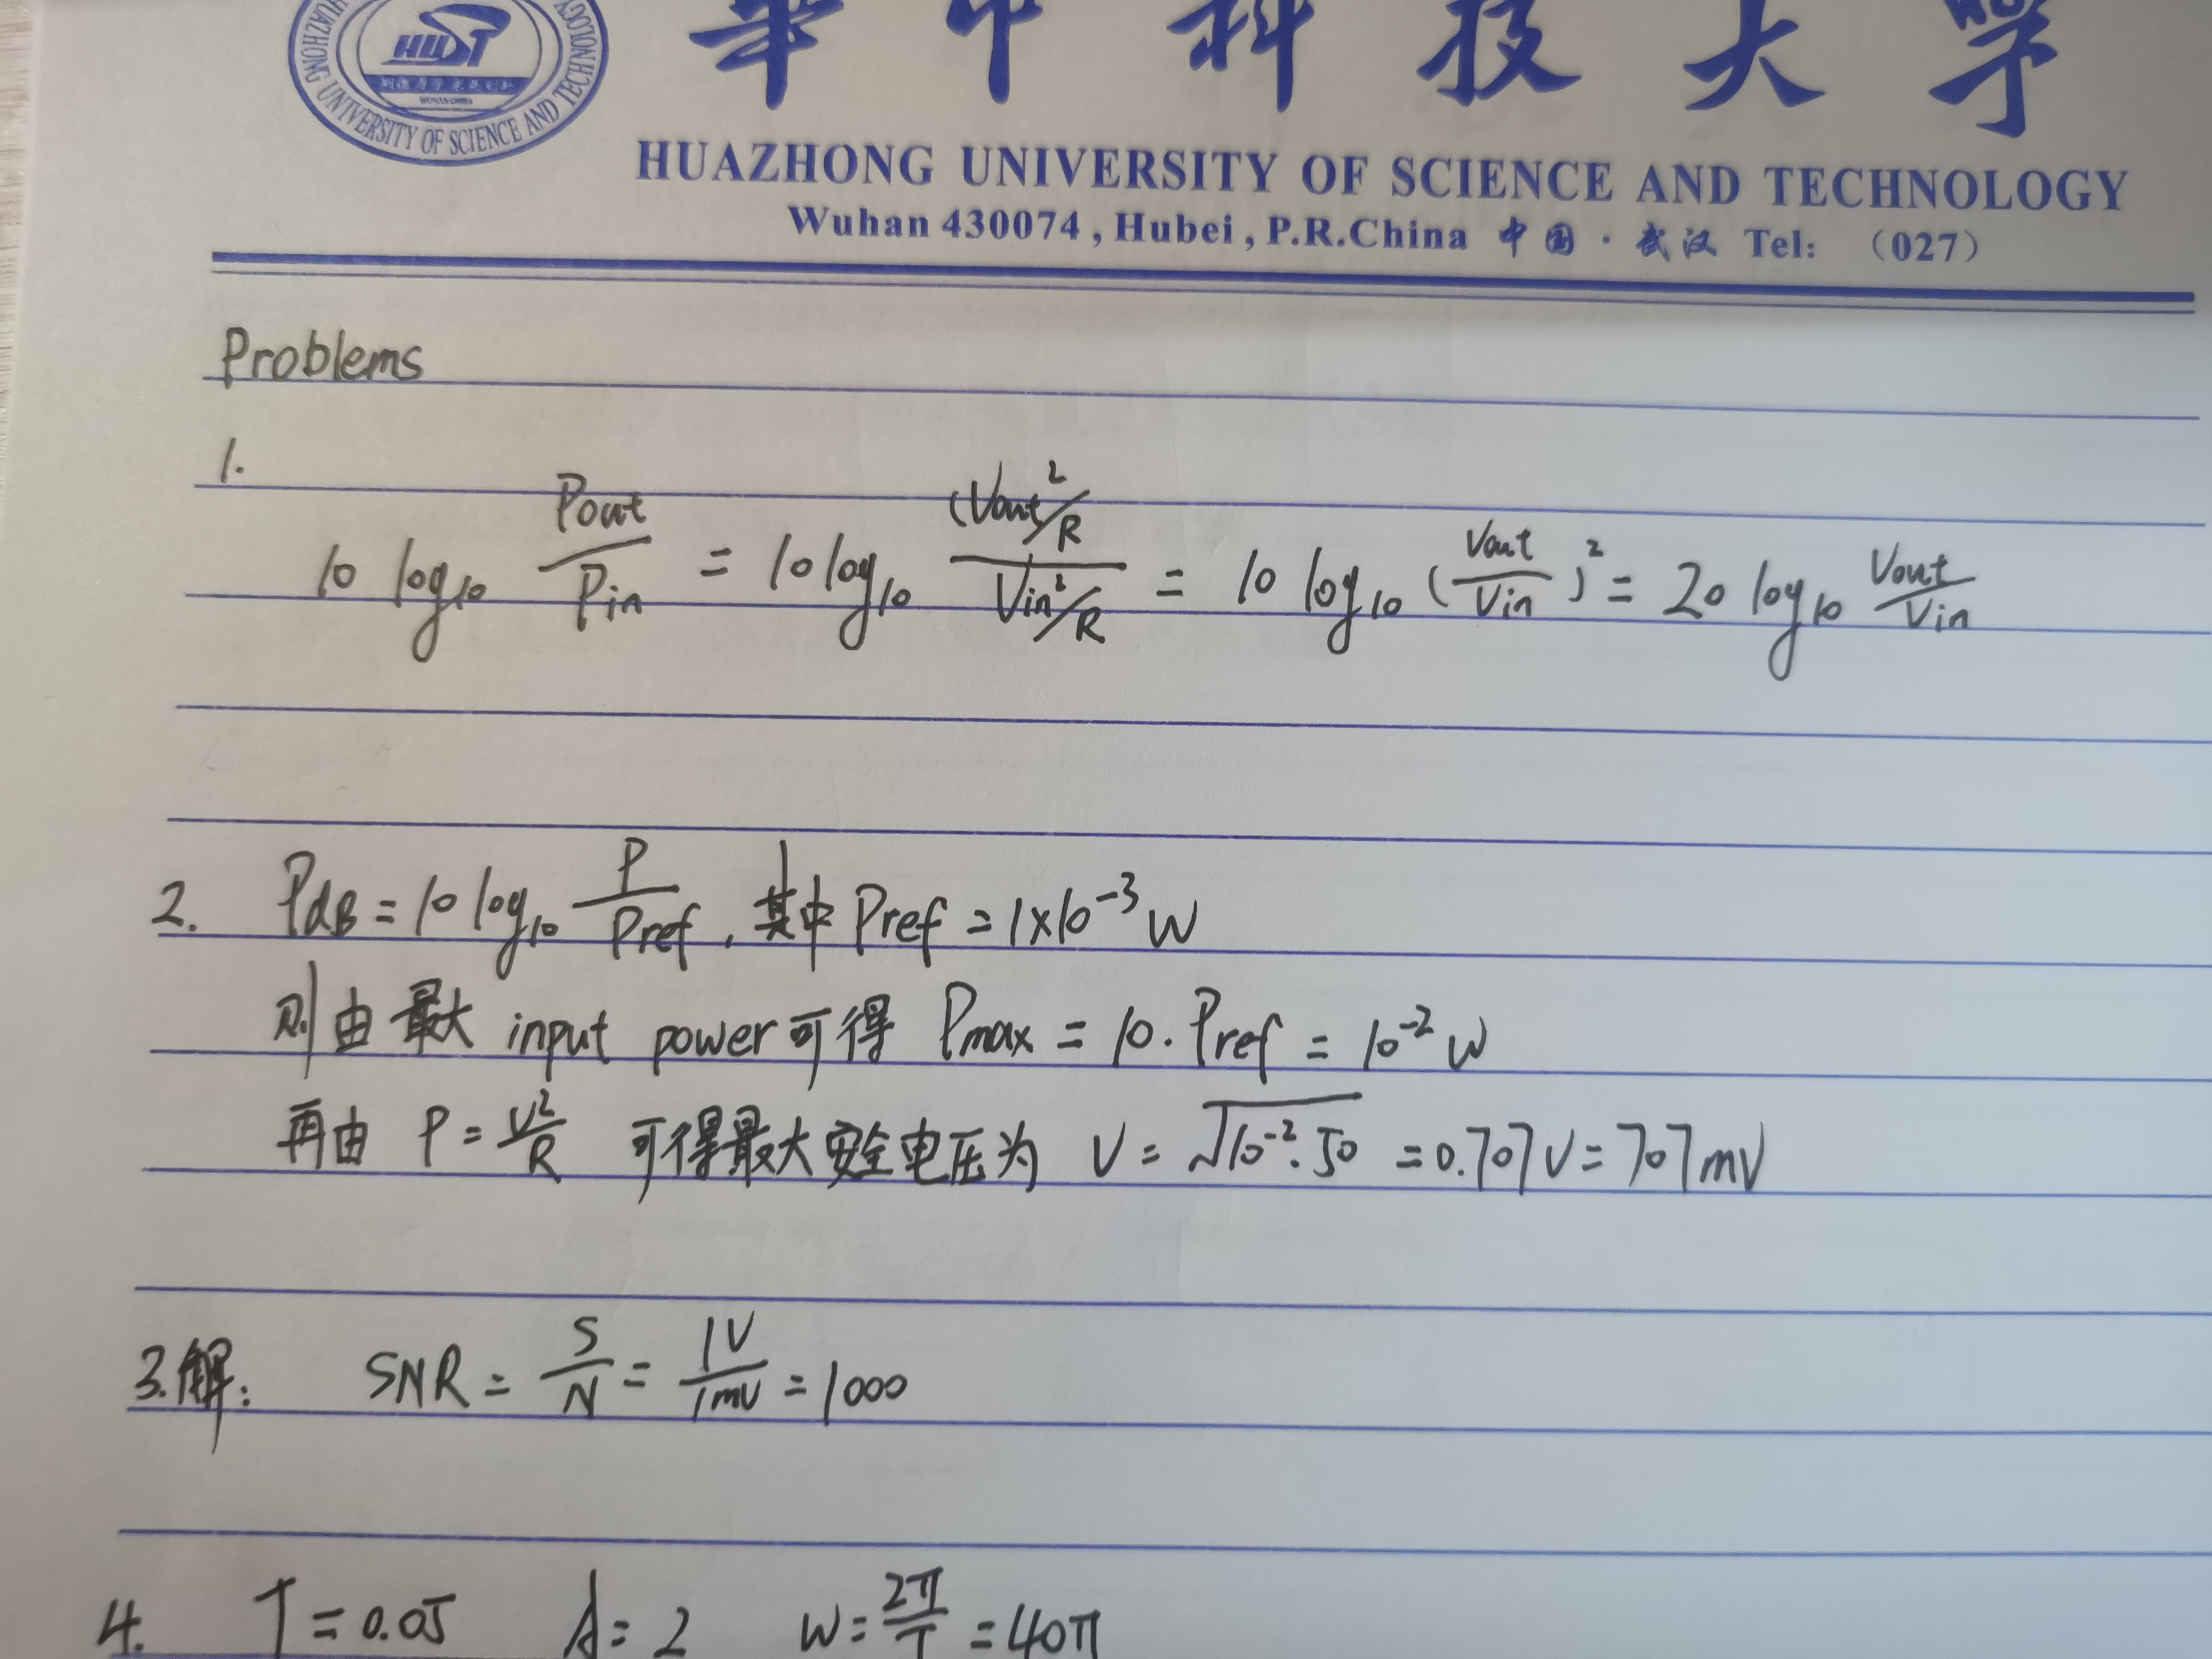 華中科技大学
HUAZHONG UNIVERSITY OF SCIENCE AND TECHNOLOGY
HUST
WUHAN CHINA
HUAZHONG UNIVERSITY OF SCIENCE AND TECHNOLOGY
Wuhan 430074, Hubei, P.R.China 中国·武汉 Tel: (027)
Problems
1.
10 log₁₀ Pout/Pin = 10 log₁₀ (Vout²/R)/(Vin²/R) = 10 log₁₀ (Vout/Vin)² = 20 log₁₀ Vout/Vin
2. PdB = 10 log₁₀ P/Pref, 其中 Pref = 1×10⁻³ W
则由最大 input power 可得 Pmax = 10·Pref = 10⁻² W
再由 P = V²/R 可得最大安全电压为 V = √10⁻²·50 = 0.707V = 707mV
3.解: SNR = S/N = 1V/1mV = 1000
4. T = 0.05 A = 2 W = 2π/T = 40π